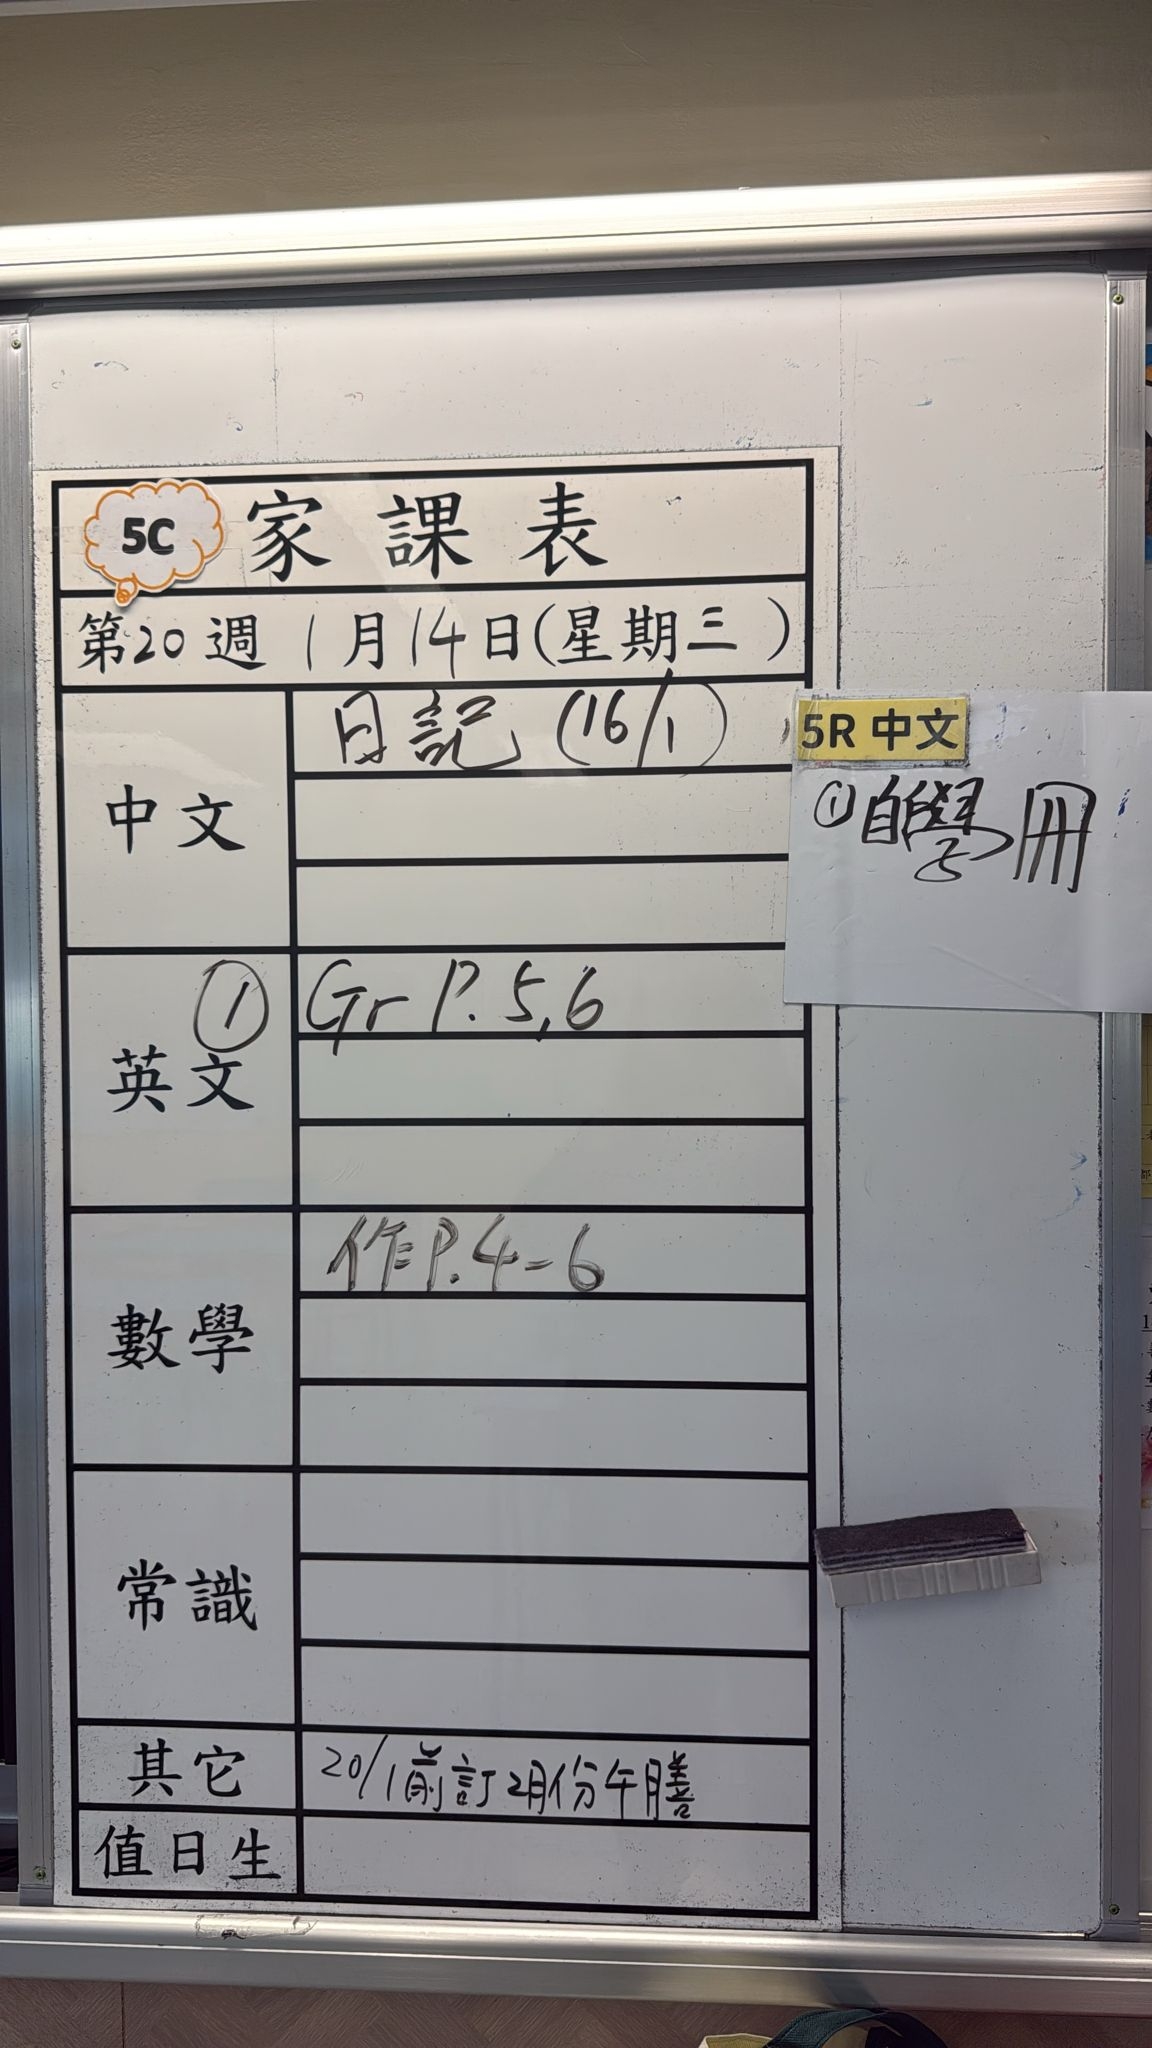 5C 家課表
第20週 1月14日(星期三)
中文
日記 (16/1)
5R 中文
① 自學冊
英文
① Gr P. 5,6
數學
作 P. 4-6
常識
其它
20/1前訂2月份午膳
值日生